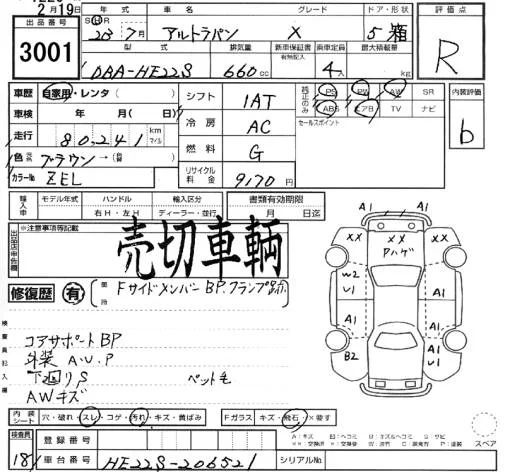 2月19日
出品番号 3001
年式 車名 グレード ドア・形状
SⒽR 20年7月 アルトラパン X 5 箱
型式 排気量 新車保証書 有無記入 乗車定員 最大積載量
DBA-HE22S 660cc 4人 kg
評価点
R
車歴 自家用・レンタ( )
車検 年 月( 日)
走行 80,241 km マイル
色 ブラウン→
カラーNo ZEL
シフト IAT
冷房 AC
燃料 G
リサイクル料金 9,170円
純正のみ PS PW AW SR
ABS エアB TV ナビ
セールスポイント
内装評価
b
輸入車 モデル年式 ハンドル 輸入区分 書類有効期限
右H・左H ディーラー・並行 月 日迄
出品店申告欄 ※注意事項等記載
売切車輌
修復歴 有 箇所 FサイドメンバーBP.クランプ跡
検査員記入欄
コアサポートBP
外装 A.U.P
下回りS ペット毛
AWキズ
A1 A1
XX XX XX
Pハゲ
W2
U1
A1 A1
B2
A1
U1
A1
内装シート 穴・破れ・スレ・コゲ・汚れ・キズ・黄ばみ Fガラス キズ・飛石・X要す
スペア
検査員 18 登録番号
車台番号 HE22S-206521 シリアルNo